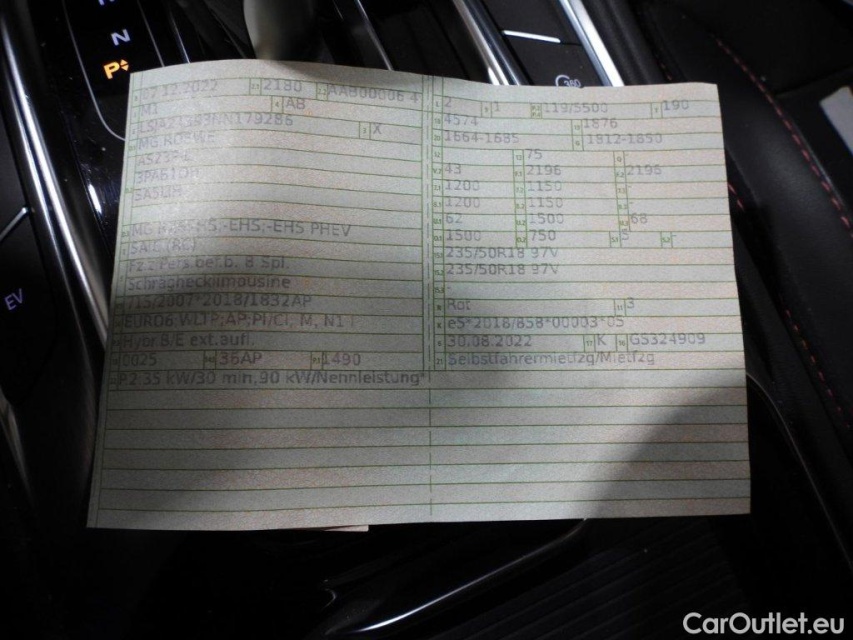 N
P
EV
360
2180 AAB00006 4
M1 AB
LSJA24393NN179286 X
MG ROEWE
SAIC (RC)
Fz.z.Pers.bef.b. 8 Spl.
Schräghecklimousine
715/2007*2018/1832AP
EURO6;WLTP;AP;PI/CI, M, N1
Hybr.B/E ext.aufl.
0025 36AP 1490
P.2:35 kW/30 min,90 kW/Nennleistung*
2 1 119/5500 190
4574 1876
1664-1685 1812-1850
75
43 2196 2196
1200 1150
1200 1150
62 1500 68
1500 750 5 -
235/50R18 97V
235/50R18 97V
-
Rot 3
e5*2018/858*00003*05
30.08.2022 K GS324909
Selbstfahrermietfzg/Mietfzg
CarOutlet.eu